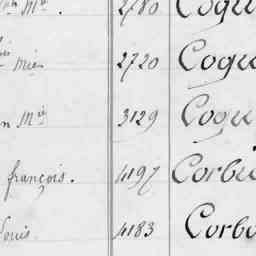 Mie 2780 Coqu
Mie 2720 Coqu
n Mie 3129 Coqu
françois. 4197 Corbi
Louis 4183 Corb